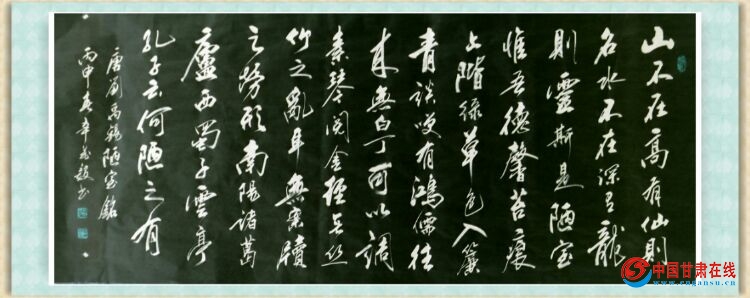 山不在高有仙則
名水不在深有龍
則靈斯是陋室
惟吾德馨苔痕
上階綠草色入簾
青談笑有鴻儒往
來無白丁可以調
素琴閱金經無絲
竹之亂耳無案牘
之勞形南陽諸葛
廬西蜀子雲亭
孔子云何陋之有
唐劉禹錫陋室銘
丙申
中国甘肃在线
www.cngansu.cn